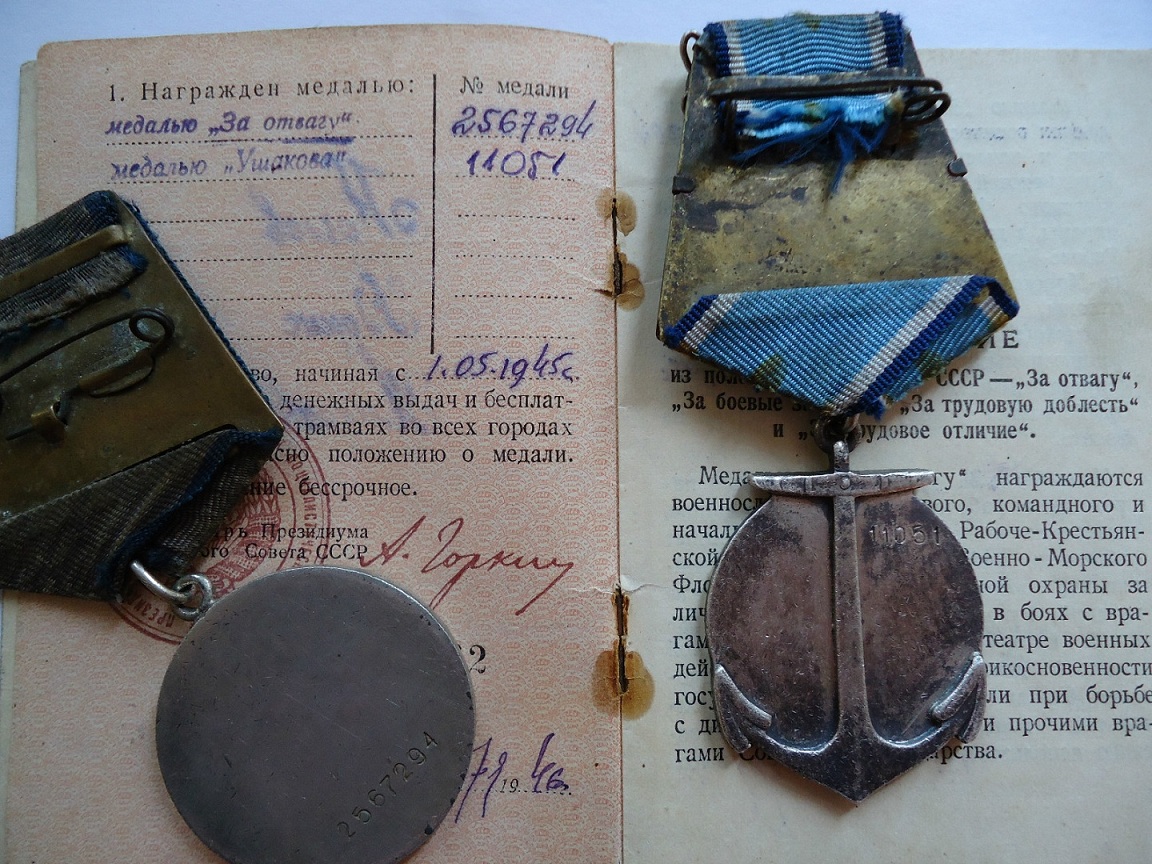 1. Награжден медалью: № медали
медалью „За отвагу“ 2567294
медалью „Ушакова“ 11051
во, начиная с 1.05.1945г.
денежных выдач и бесплат-
трамваях во всех городах
сно положению о медали.
ние бессрочное.
рь Президиума
ого Совета СССР А. Горкин
2
19 46.
2567294
ИЕ
из пол СССР — „За отвагу“,
„За боевые з „За трудовую доблесть“
и „ рудовое отличие“.
Меда гу“ награждаются
военносл вого, командного и
начал Рабоче-Крестьян-
ской Военно-Морского
Фло ной охраны за
лич в боях с вра-
гам театре военных
дей рикосновенности
госу ли при борьбе
с ди и прочими вра-
гами Со арства.
11051